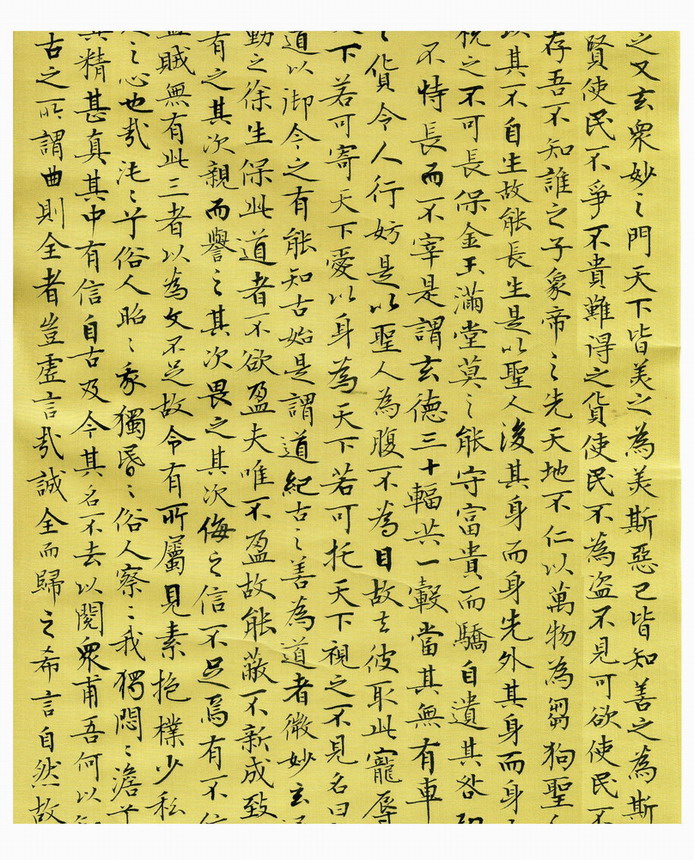 之又玄衆妙之門天下皆美之為美斯惡已皆知善之為斯
賢使民不爭不貴難得之貨使民不為盜不見可欲使民不
存吾不知誰之子象帝之先天地不仁以萬物為芻狗聖
以其不自生故能長生是以聖人後其身而身先外其身而身
梲之不可長保金玉滿堂莫之能守富貴而驕自遺其咎
不恃長而不宰是謂玄德三十輻共一轂當其無有車
之貨令人行妨是以聖人為腹不為目故去彼取此寵辱
下若可寄天下愛以身為天下若可托天下視之不見名曰
道以御今之有能知古始是謂道紀古之善為道者微妙玄
動之徐生保此道者不欲盈夫唯不盈故能蔽不新成致
有之其次親而譽之其次畏之其次侮之信不足焉有不信
盜賊無有此三者以為文不足故令有所屬見素抱樸少私
人之心也哉沌沌乎俗人昭昭我獨昏昏俗人察察我獨悶悶澹乎
其精甚真其中有信自古及今其名不去以閱衆甫吾何以知
古之所謂曲則全者豈虛言哉誠全而歸之希言自然故